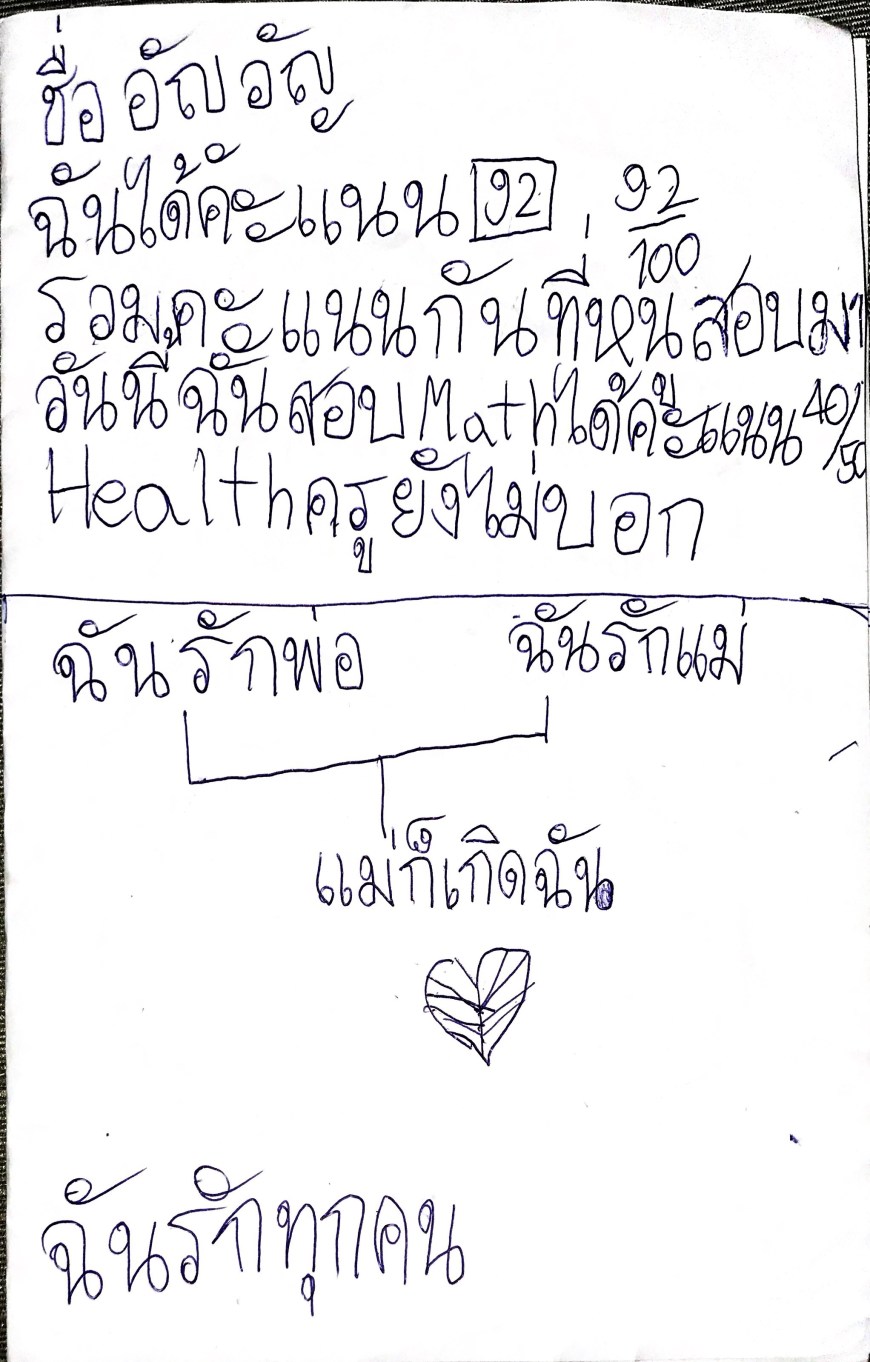 ชื่อ อัญวัญ
ฉันได้ค้ะแนน 92 , 92/100
รวมคะแนนกันที่หนูสอบมา
วันนี้ฉันสอบ Math ได้ค้ะแนน 40/50
Health ครูยังไม่บอก
ฉันรักพ่อ ฉันรักแม่
แม่ก็เกิดฉัน
ฉันรักทุกคน